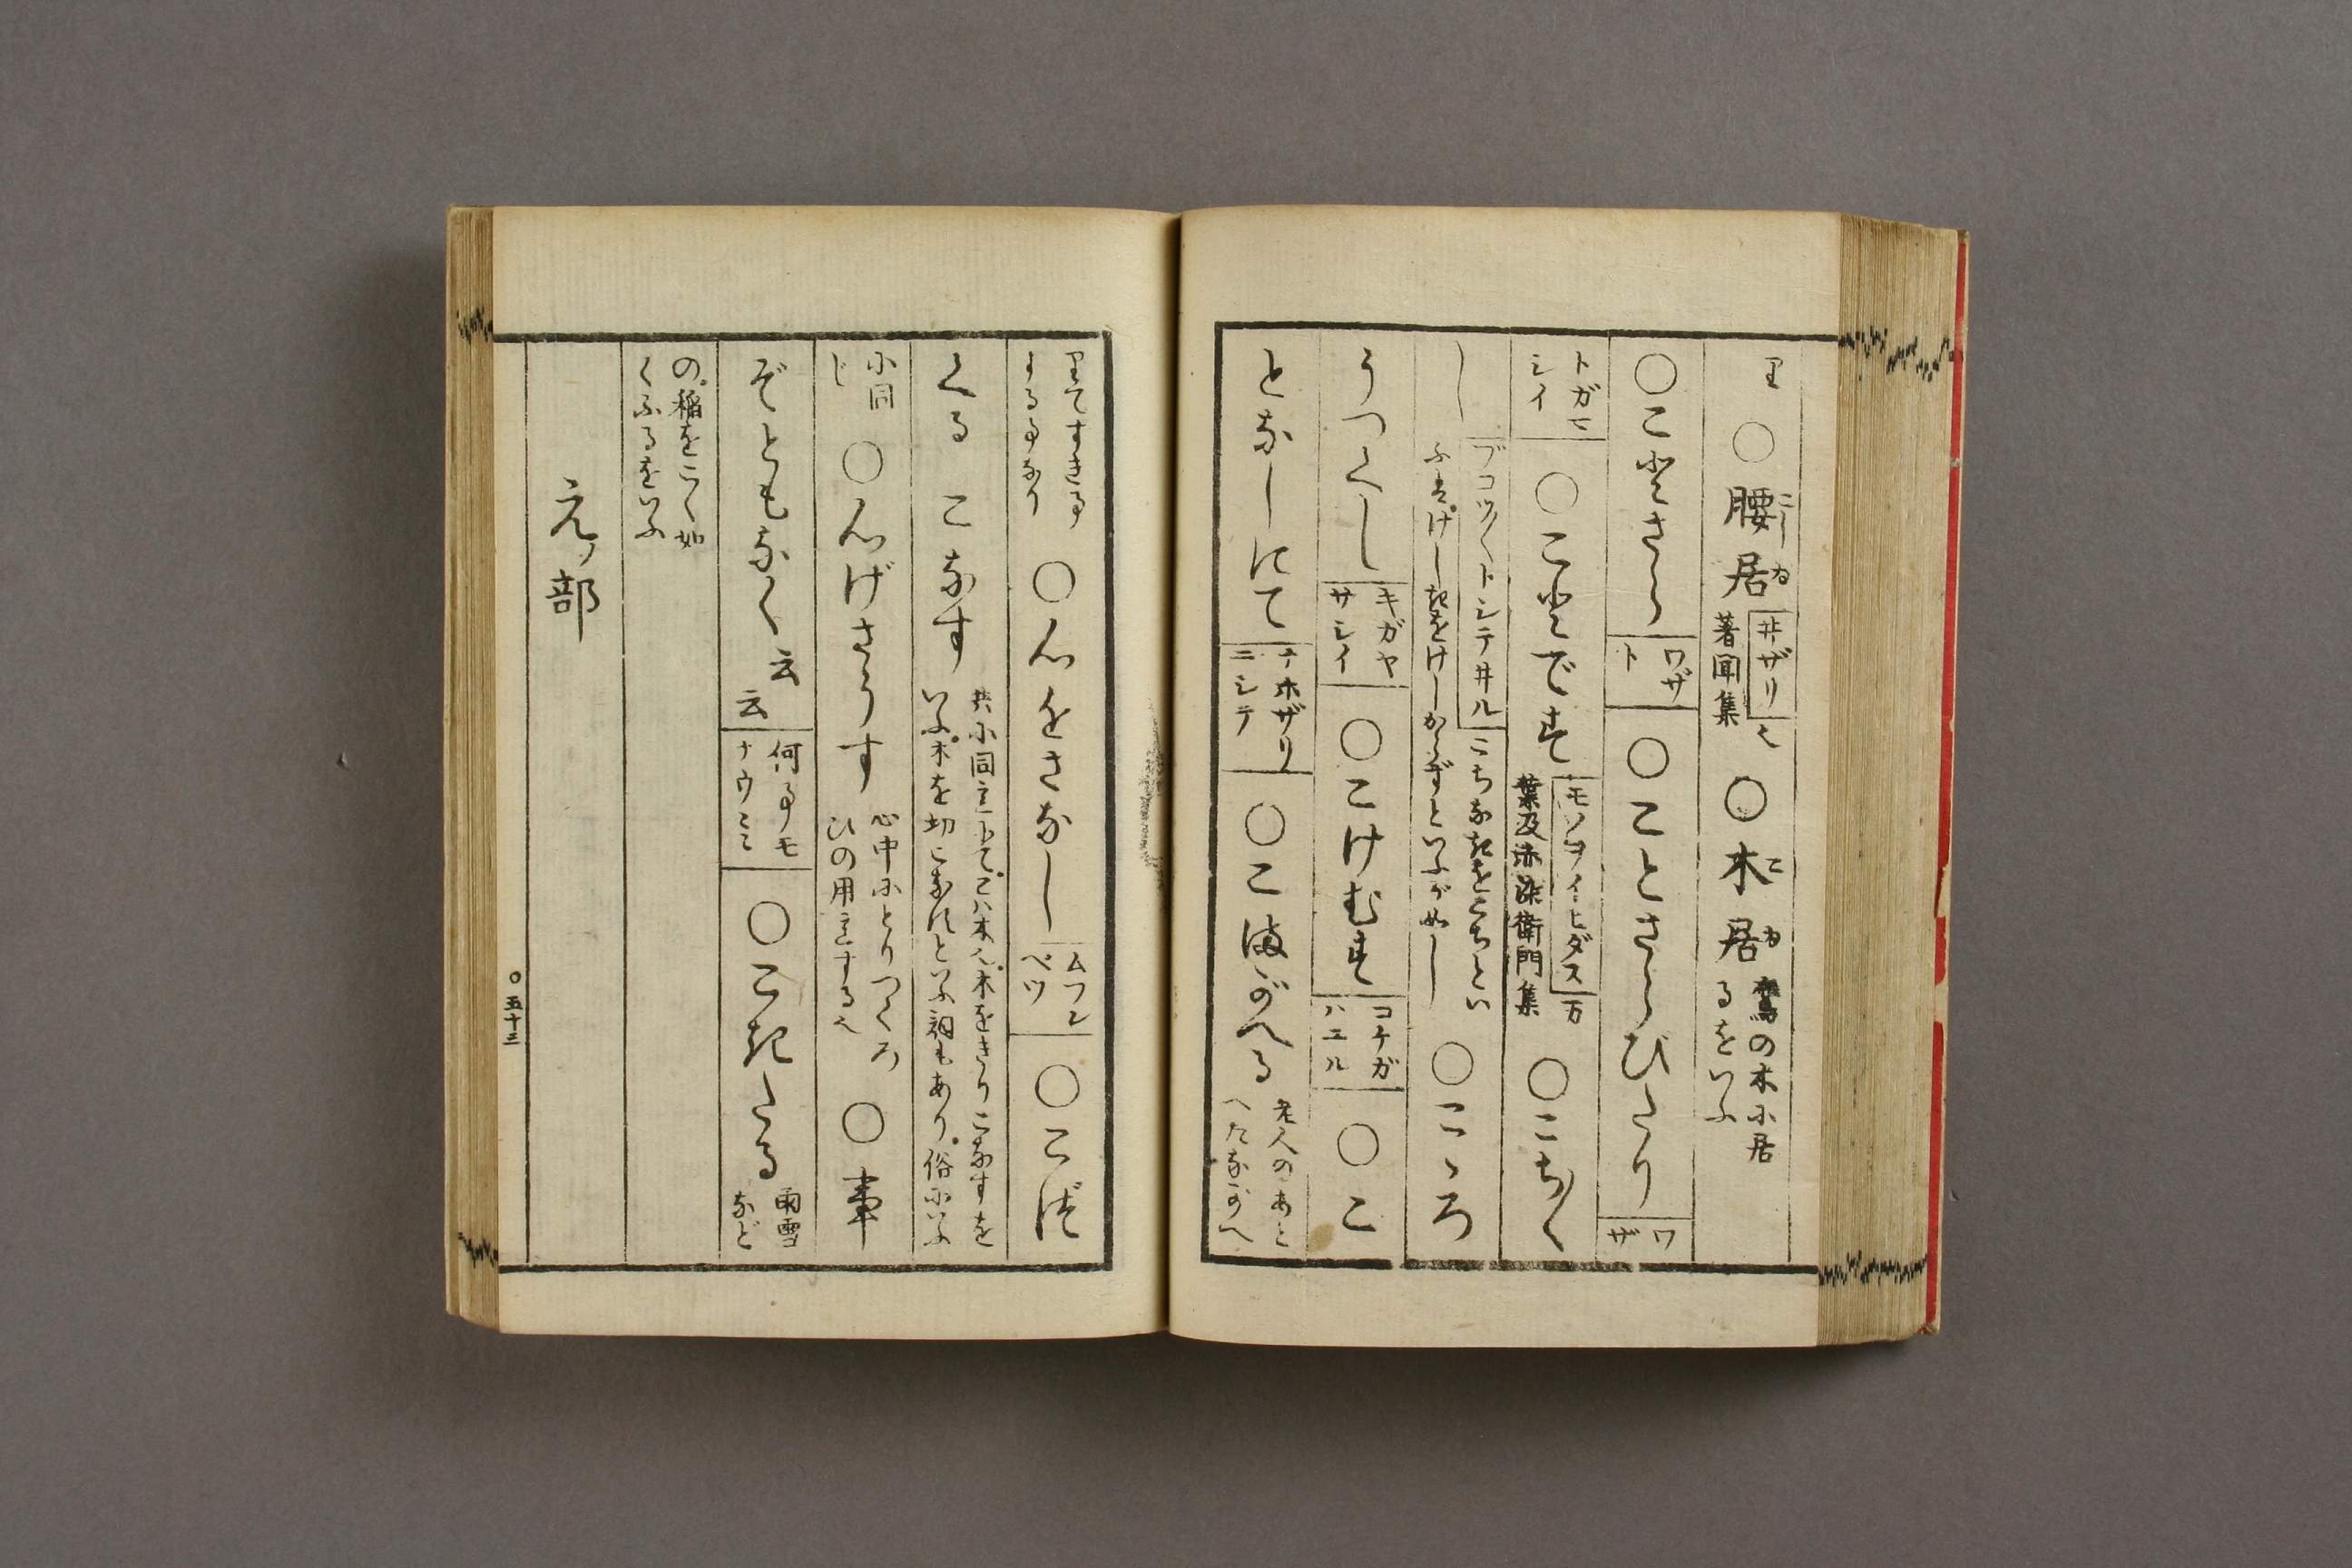 里 ○腰居 こしゐ 井ザリ 也 著聞集 ○木居 こゐ 鷲の木に居るをいふ
○ことさら ワザト ○ことさらびたり ワザ
トガマシイ ○ことです モノヲイヒダス 万葉及赤染衛門集 ○こち〳〵
し ブコツ〳〵トシテ井ル こちなきをこちといふは。けしきをけしからずといふが如し ○こゝろ
うつくし キガヤサシイ ○こけむす コケガハエル ○こ
となしにて ナホザリニシテ ○こまがへる 老人のあとへたながへ
里てすきる するなり ○心をさなし ムフンベツ ○こず
くる こなす 共に同 木をきりこなすをいふ。木を切こなすといふ詞もあり。俗にいふ
に同じ ○心げさうす 心中にとりつくろひの用意する也 ○事
ぞともなく 云云 何事モナウ ○こきたる 雨雪など
の。稲をこく如くふるをいふ
え ノ部
○五十三